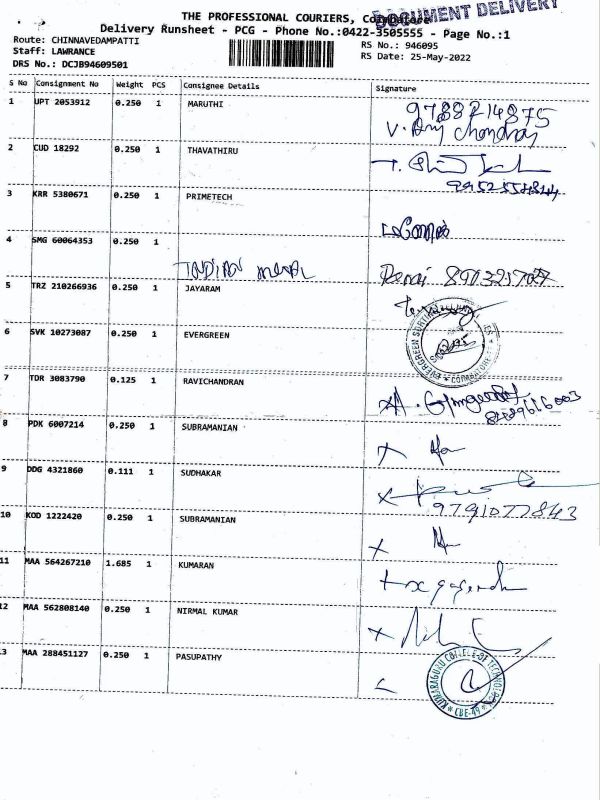 THE PROFESSIONAL COURIERS, Coimbatore
DOCUMENT DELIVERY
Delivery Runsheet - PCG - Phone No.:0422-3505555 - Page No.:1
Route: CHINNAVEDAMPATTI
Staff: LAWRANCE
DRS No.: DCJB94609501
RS No.: 946095
RS Date: 25-May-2022
S No Consignment No Weight PCS Consignee Details Signature
1 UPT 2053912 0.250 1 MARUTHI
9788214875
2 CUD 18292 0.250 1 THAVATHIRU
3 KRR 5380671 0.250 1 PRIMETECH
4 SMG 60064353 0.250 1
INDIAN METAL
5 TRZ 210266936 0.250 1 JAYARAM
6 SVK 10273087 0.250 1 EVERGREEN
7 TDR 3083790 0.125 1 RAVICHANDRAN
8 PDK 6007214 0.250 1 SUBRAMANIAN
9 DDG 4321860 0.111 1 SUDHAKAR
9791077843
10 KOD 1222420 0.250 1 SUBRAMANIAN
11 MAA 564267210 1.685 1 KUMARAN
12 MAA 562808140 0.250 1 NIRMAL KUMAR
3 MAA 288451127 0.250 1 PASUPATHY
KUMARAGURU COLLEGE OF TECHNOLOGY
CBE-49